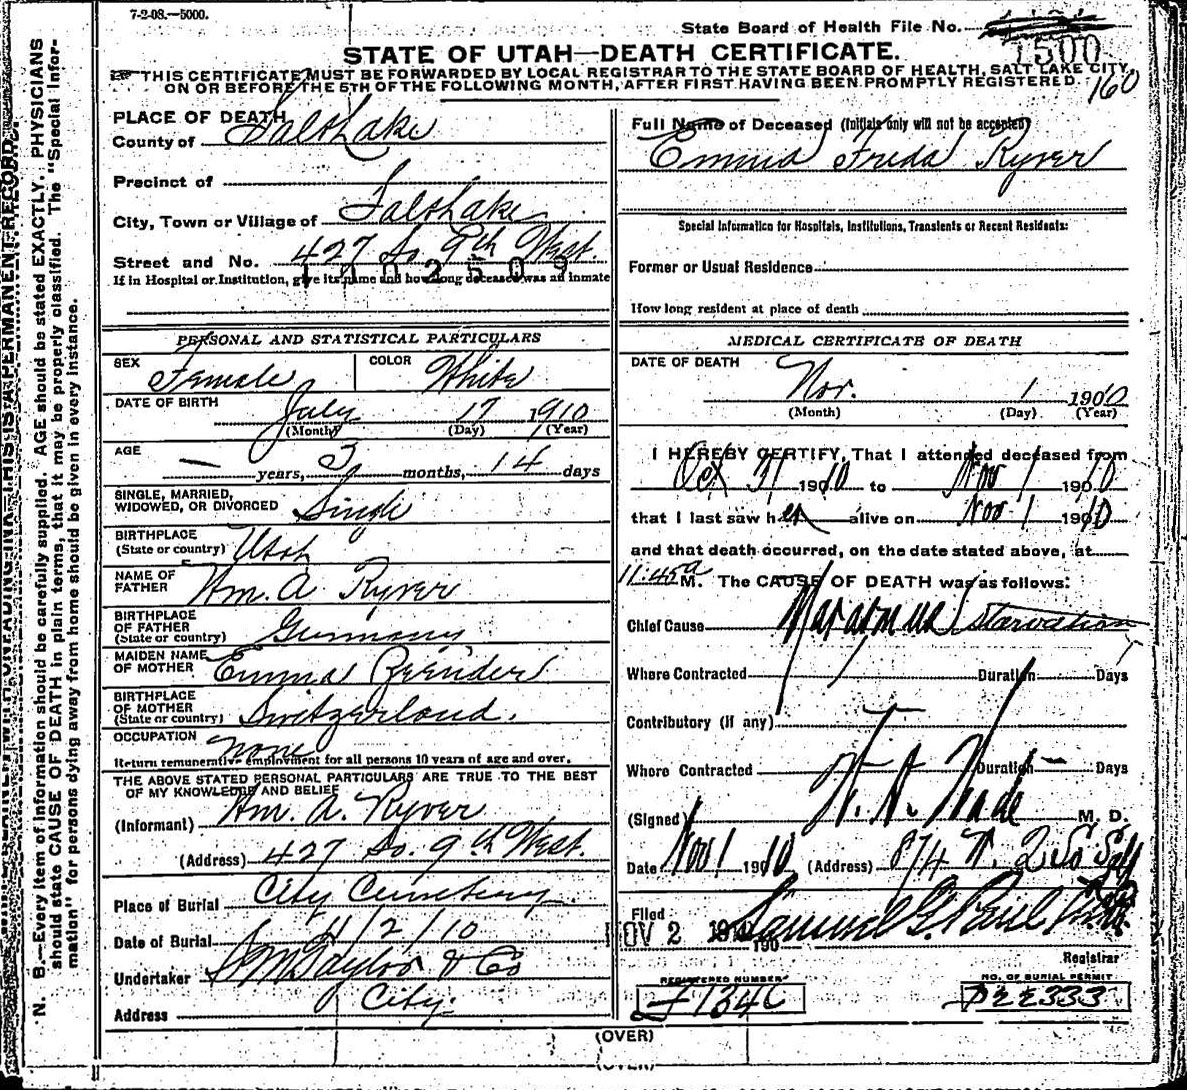 7-2-08.—5000.
State Board of Health File No.
1500
160
STATE OF UTAH—DEATH CERTIFICATE.
THIS CERTIFICATE MUST BE FORWARDED BY LOCAL REGISTRAR TO THE STATE BOARD OF HEALTH, SALT LAKE CITY,
ON OR BEFORE THE 5TH OF THE FOLLOWING MONTH, AFTER FIRST HAVING BEEN PROMPTLY REGISTERED.
PLACE OF DEATH
County of Salt Lake
Precinct of
City, Town or Village of Salt Lake
Street and No. 427 So. 9th West.
1102509
If in Hospital or Institution, give its name and how long deceased was an inmate
PERSONAL AND STATISTICAL PARTICULARS
SEX Female COLOR White
DATE OF BIRTH July 17 1910
(Month) (Day) (Year)
AGE — years, 3 months, 14 days
SINGLE, MARRIED,
WIDOWED, OR DIVORCED Single
BIRTHPLACE
(State or country) Utah
NAME OF
FATHER Wm. A Ryver
BIRTHPLACE
OF FATHER
(State or country) Germany
MAIDEN NAME
OF MOTHER Emma
BIRTHPLACE
OF MOTHER
(State or country) Switzerland.
OCCUPATION none
Return remunerative employment for all persons 10 years of age and over.
THE ABOVE STATED PERSONAL PARTICULARS ARE TRUE TO THE BEST
OF MY KNOWLEDGE AND BELIEF
(Informant) Wm. A. Ryver
(Address) 427 So. 9th West.
Place of Burial City Cemetery
Date of Burial 11/2/10
Undertaker S M Taylor & Co
Address City.
Full Name of Deceased (Initials only will not be accepted)
Emma Freda Ryver
Special Information for Hospitals, Institutions, Transients or Recent Residents:
Former or Usual Residence
How long resident at place of death
MEDICAL CERTIFICATE OF DEATH
DATE OF DEATH
Nov. 1 1910
(Month) (Day) (Year)
I HEREBY CERTIFY, That I attended deceased from
Oct 31 1910 to Nov 1 1910
that I last saw her alive on Nov 1 1910
and that death occurred, on the date stated above, at
11:45a M. The CAUSE OF DEATH was as follows:
Chief Cause Marasmus (Starvation
Where Contracted Duration Days
Contributory (if any)
Where Contracted Duration Days
(Signed) M. D.
Date Nov 1 1910 (Address) 874 W. 2 So
Filed
NOV 2 1910 Samuel G. Paul
Registrar
REGISTERED NUMBER
NO. OF BURIAL PERMIT
(OVER)
(OVER)
N. B.—Every item of information should be carefully supplied. AGE should be stated EXACTLY. PHYSICIANS
should state CAUSE OF DEATH in plain terms, that it may be properly classified. The "Special Infor-
mation" for persons dying away from home should be given in every instance.
THIS IS A PERMANENT RECORD.